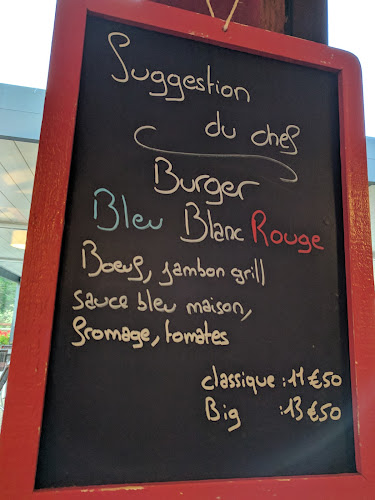 Suggestion
du chef
Burger
Bleu Blanc Rouge
Boeuf, jambon grill
sauce bleu maison,
fromage, tomates
classique : 11€50
Big : 13€50